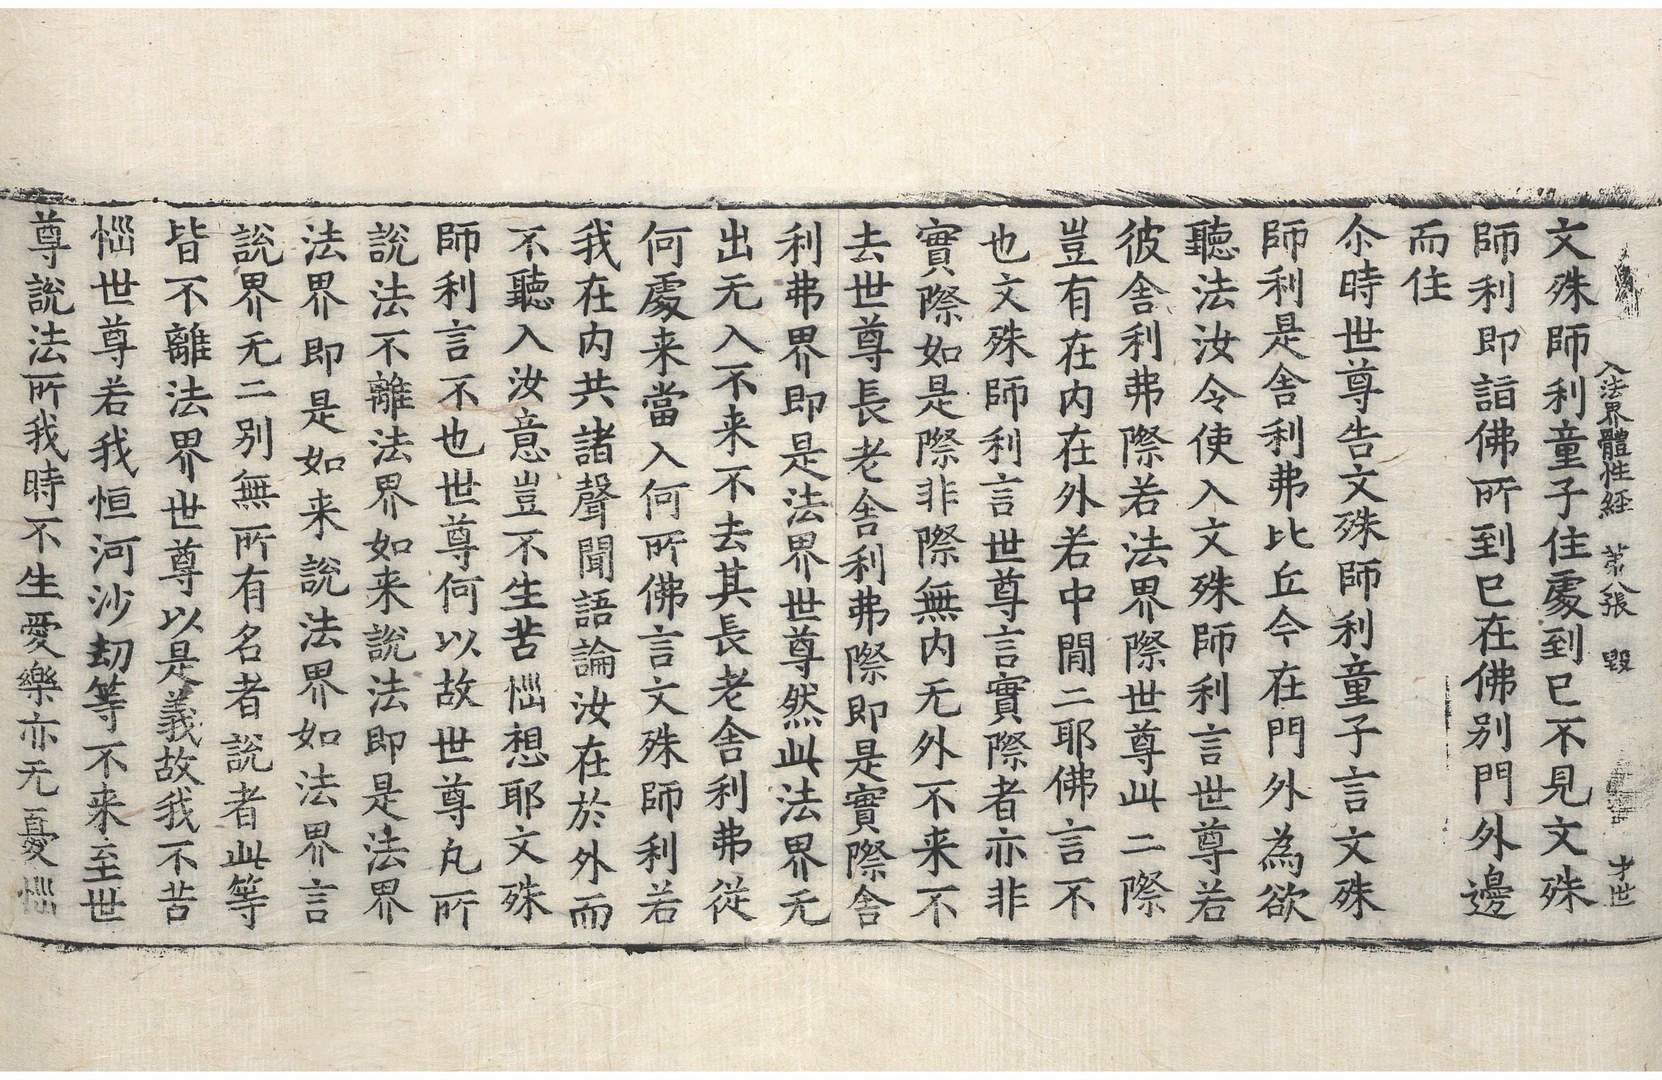 入法界體性經 第八張 毀 才世
文殊師利童子住處到已不見文殊
師利即詣佛所到已在佛別門外邊
而住
尒時世尊告文殊師利童子言文殊
師利是舍利弗比丘今在門外為欲
聽法汝令使入文殊師利言世尊若
彼舍利弗際若法界際世尊此二際
豈有在內在外若中間二耶佛言不
也文殊師利言世尊言實際者亦非
實際如是際非際無內无外不来不
去世尊長老舍利弗際即是實際舍
利弗界即是法界世尊然此法界无
出无入不来不去其長老舍利弗從
何處来當入何所佛言文殊師利若
我在內共諸聲聞語論汝在於外而
不聽入汝意豈不生苦惱想耶文殊
師利言不也世尊何以故世尊凡所
說法不離法界如来說法即是法界
法界即是如来說法界如法界言
說界无二別無所有名者說者此等
皆不離法界世尊以是義故我不苦
惱世尊若我恒河沙劫等不来至世
尊說法所我時不生愛樂亦无憂惱